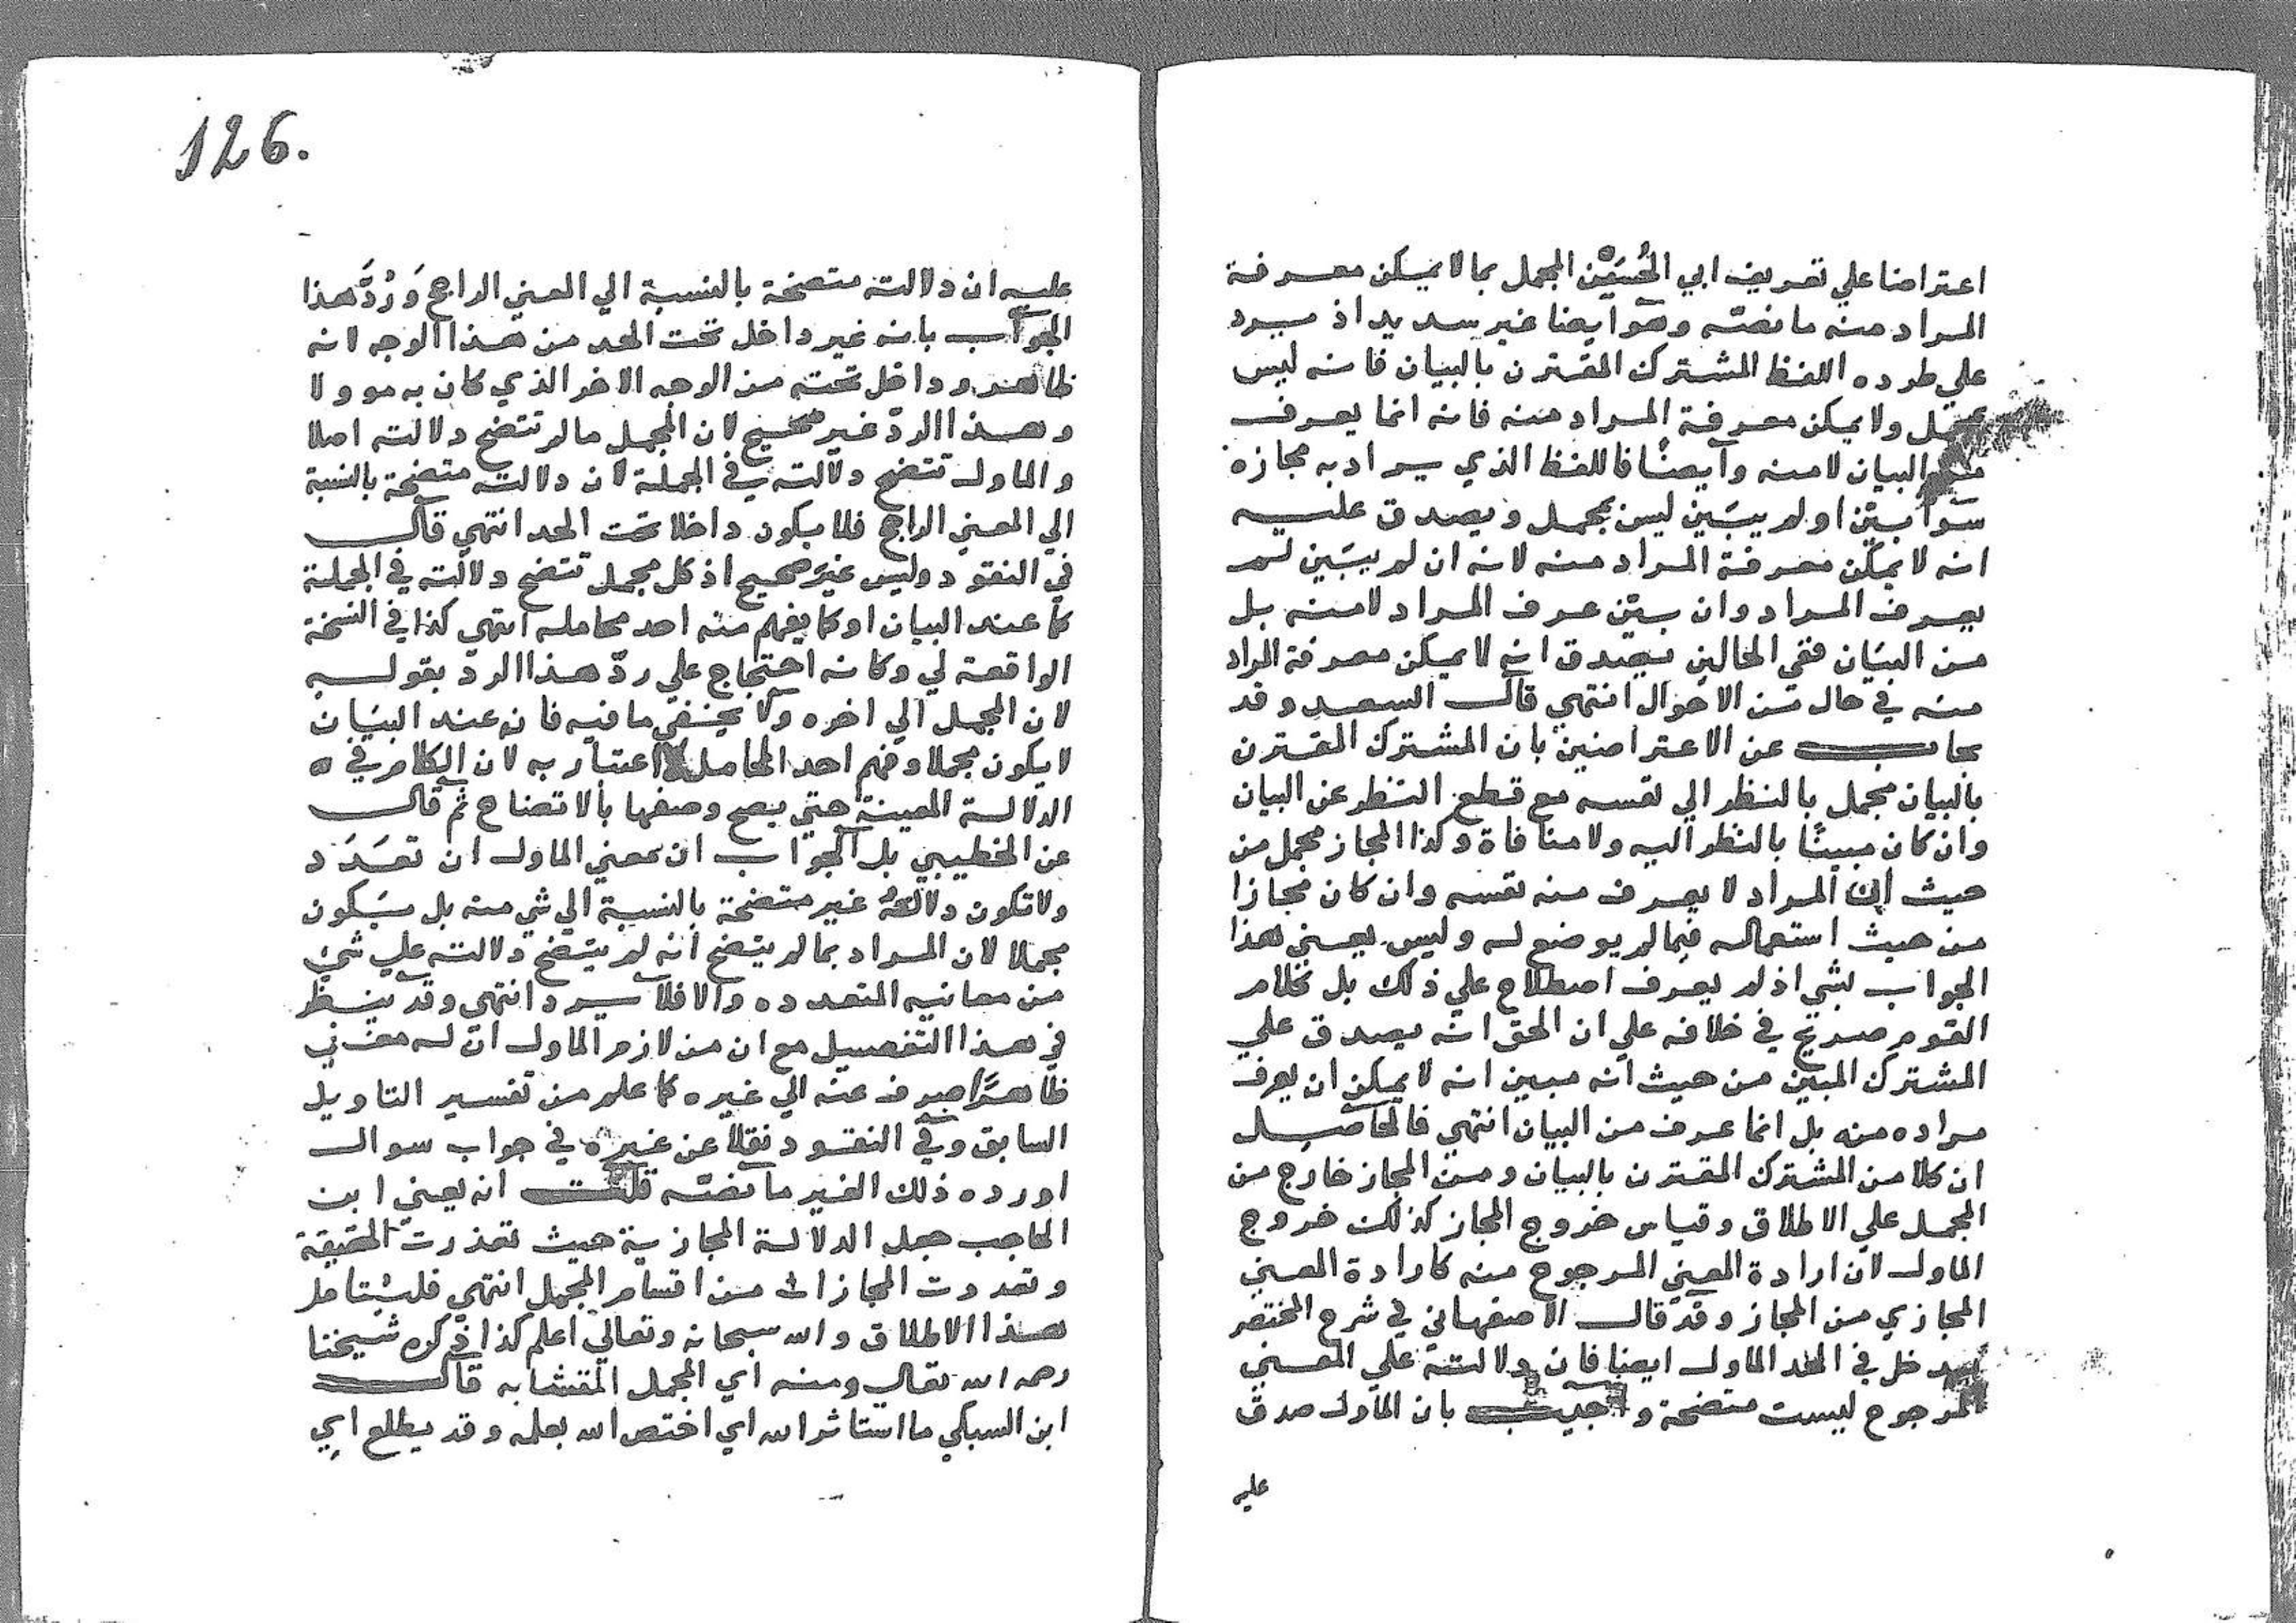 اعتراضا علي تعريف ابي الحُسَين المجمل بما لا يمكن معرفة
المراد منه ما نصه وهو ايضا غير سديد اذ يرد
علي طرده اللفظ المشترك المقترن بالبيان فانه ليس
بمجمل ولا يمكن معرفة المراد منه فانه انما يعرف
من البيان لا منه وايضًا فاللفظ الذي يراد به مجازه
سوآ بيّن او لم يبَين ليس بمجمل ويصدق عليه
انه لا يمكن معرفة المراد منه لانه ان لم يبَين لم
يعرف المراد وان بيّن عرف المراد لا منه بل
من البيَان ففي الحالين يصدق انه لا يمكن معرفة المراد
منه في حال من الاحوال انتهي قال السعد وقد
يجاب عن الاعتراضين بان المشترك المقترن
بالبيان مجمل بالنظر الي نفسه مع قطع النظر عن البيان
وان كان مبينًا بالنظر اليه ولا منافاة وكذا المجاز مجمل من
حيث ان المراد لا يعرف منه نفسه وان كان مجازا
من حيث استعماله فيما لم يوضع له وليس يعني هذا
الجواب بشي اذ لم يعرف اصطلاح علي ذلك بل كلام
القوم صريح في خلافه علي ان الحق انه يصدق علي
المشترك المبين من حيث انه مبين انه لا يمكن ان يعرف
مراده منه بل انما عرف من البيان انتهي فالحاصل
ان كلا من المشترك المقترن بالبيان ومن المجاز خارج من
المجمل علي الاطلاق وقياس خروج المجاز كذلك خروج
الماول لان ارادة المعني المرجوح منه كارادة المعني
المجازي من المجاز وقد قال الاصفهاني في شرح المختصر
يدخل في الحد الماول ايضا فان دلالته علي المعني
المرجوح ليست متضحة واجيب بان الماول صدق
عليه
126.
عليه ان دلالته متضحة بالنسبة الي المعني الراجح وَرُدَّ هذا
الجواب بانه غير داخل تحت الحد من هذا الوجه لانه
ظاهر وداخل تحته من الوجه الاخر الذي كان به موولا
وهذا الردّ غير صحيح لان المجمل ما لم تتضح دلالته اصلا
والماول تتضح دلالته في الجملة لان دلالته متضحة بالنسبة
الي المعني الراجح فلا يكون داخلا تحت الحد انتهي قال
في النقود وليس غيرَ صحيح اذ كل مجمل تتضح دلالته في الجملة
كما عند البيان او كما يفهم منه احد محامله انتهي كذا في النسخة
الواقعة لي وكانه احتجاج علي ردّ هذا الرد بقوله
لان المجمل الي اخره ولا يخفي ما فيه فان عند البيَان
لا يكون مجملا وفهم احد المحامل لا اعتبار به لان الكلام في
الدلالة المعينة حتي يصح وصفها بالاتضاح ثم قال
عن الخطيبي بل الجواب ان معني الماول ان تعَدَد
ولا تكون دلالته غير متضحة بالنسبة الي شي منه بل سَيكون
مجملا لان المراد بما لم يتضح انه لم يتضح دلالته علي شيء
من معانيه المتعدده والا فلا يرد انتهي وقد ينظر
في هذا التفصيل مع ان من لازم الماول ان له معني
ظاهرًا صرف عنه الي غيره كما علم من تفسير التاويل
السابق وفي النقود نقلا عن غيره في جواب سوال
اورده ذلك الغير ما نصه قلت انه يعني ابن
الحاجب جعل الدلالة المجازية حيث تعذرت الحقيقة
وتعددت المجازات من اقسام المجمل انتهي فليُتامل
هذا الاطلاق والله سبحانه وتعالي اعلم كذا ذكره شيخنا
رحمه الله تعالي ومنه اي المجمل المتشابه قال
ابن السبكي ما استاثر الله اي اختص الله بعلمه وقد يطلع اي